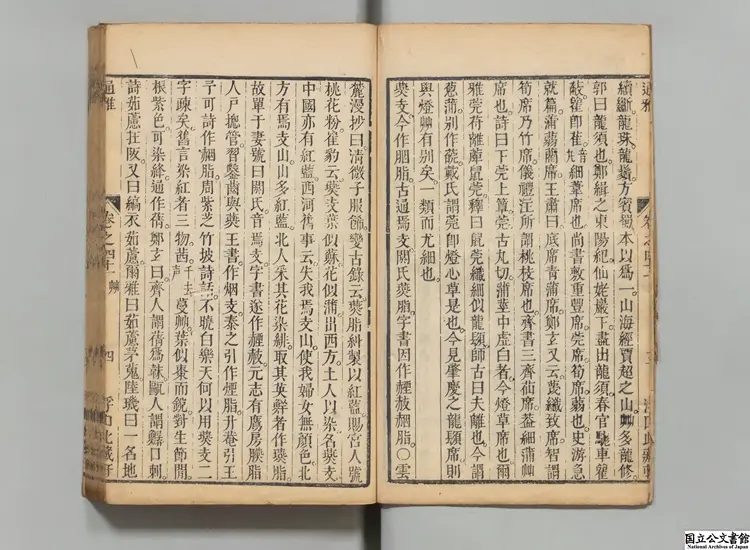 續斷。龍珠。龍鬚。方賓蜀本以爲一。山海經賈超之山。艸多龍修。
郭曰龍須也。鄭緝之東陽紀仙姥巖下盡出龍須。春官駹車雚
蔽。雚即萑。音丸細葦席也。尚書敷重豐席莞席筍席蒻也。史游急
就篇蒲蒻藺席。王肅曰底席青蒲席。鄭玄又云蔑纖致席。智謂
筍席乃竹席。儀禮注所謂桃枝席也。齊書三齊仙席。葢細蒲艸
席也。詩曰下莞上簟。莞古丸切。蒲葦中虛白者。今燈草席也。爾
雅莞苻蘺薡鼠莞。釋曰鼠莞纖細似龍須。師古曰夫離也。今謂
葱蒲。别作戴氏謂莞即燈心草是也。今見肇慶之龍鬚席。則
與燈艸有別矣。一類而尤細也。
燕支。今作胭脂。古通焉支閼氏燕脂。字書因作赦胭脂。〇雲
麓漫抄曰。凊微子服餙變古錄云。燕脂紂製以紅藍。賜宮人號
桃花粉。崔豹云。燕支葉似蘇。花似蒲。出西方。土人以染。名燕支。
中國亦有紅藍。西河舊事云。失我焉支山。使我婦女無顔色。北
方有焉支山。山多紅藍。北人采其花染緋。取其英鮮者作燕脂。
故單于妻號曰閼氏。音焉支。字書遂作赦。元志有鷹房臙脂
人戸總管。習鑿齒與燕王書作烟支。秦之引作煙脂。升菴引王
予可詩作脂。周紫芝竹坡詩話。不曉白樂天何以用燕支二
字。疎矣。舊言染紅者三物。茜千去聲。蔓柳葉似棗而銳。對生節間。
根紫色。可染絳。通作蒨。鄭玄曰。齊人謂蒨爲韎。甌人謂口刺
詩茹藘在阪。又曰縞衣茹藘。爾雅曰茹藘茅蒐。陸璣曰一名地
通雅 卷之四十一 艸 四 浮山此藏軒
国立公文書館
National Archives of Japan